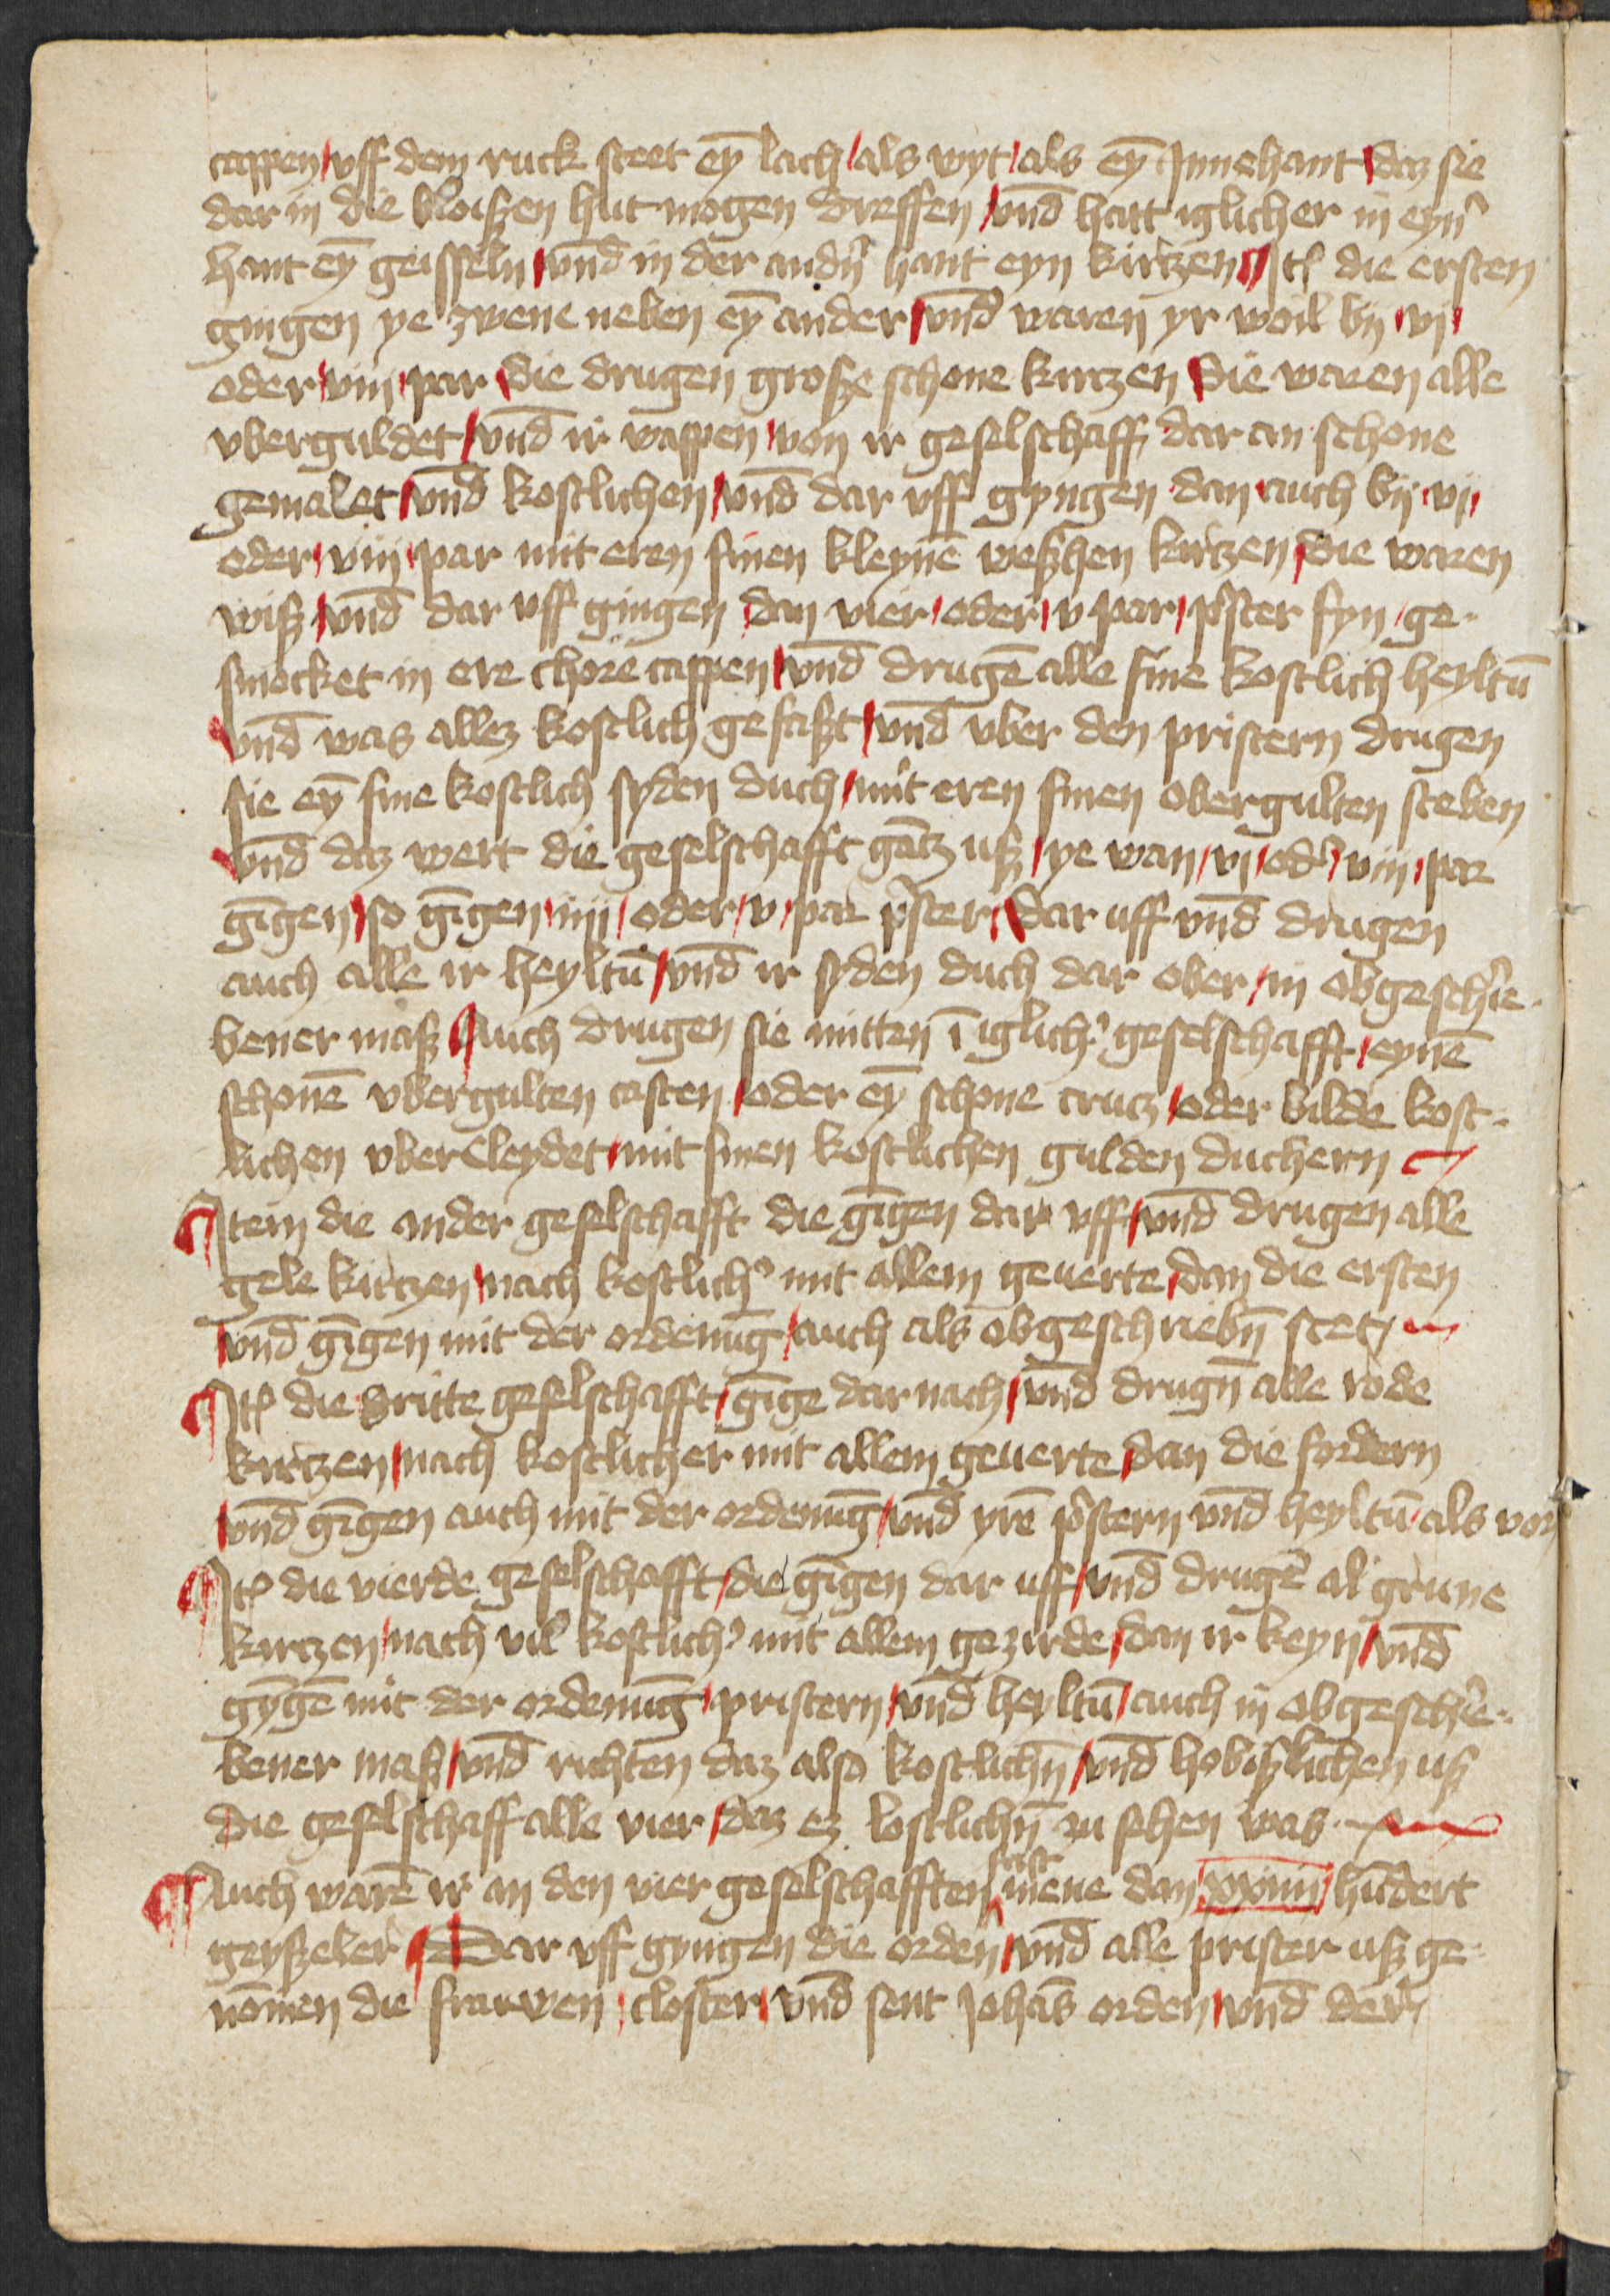 cappen / vff dem ruck steet eȳ lach / als wyt / als eȳ Innehant / daz sie
dar in die bloißen hut mogen dreffen / vnd̄ hatt iglicher in eyn᾽
hant eȳ geisseln / vnd̄ in der andn᾽ hant eyn kirtzen / Itē die ersten
gingen ye zwene neben eȳ ander / vnd̄ waren yr woil bij / vj /
oder / viij / par / die drugen große schone kirtzen / die waren alle
vberguldet / vnd̄ ir wappen / von ir geselschafft dar an schone
gemalet / vnd̄ kostlichen / vnd̄ dar vff gyngen dan auch bij vj /
oder / viij / par mit eren finen kleynē weßchen kirtzen / die waren
wiß / vnd̄ dar vff gingen / dan vier / oder / v par / p᾽ster fyn / ge-
smocket in ere chore cappen / vnd̄ drugē alle fine kostlich heyltū
vnd̄ was allez kostlich gefaßt / vnd̄ vber den pristern drugen
sie eȳ fine kostlich syden duch / mit eren finen obergulten steben
vnd̄ daz wert die geselschafft gātz uß / ye wan / vj / od᾽ / viij / par
gīgen / so gīgen / iiij / oder / v / par p᾽ster / dar uff vnd̄ drugen
auch alle ir heyltū / vnd̄ ir syden duch dar ober / in obgesch᾽ie-
bener maß / Auch drugen sie mitten ī iglich᾽ geselschafft / eynē
schonē vbergulten casten / oder eȳ schone crucz / oder bilde kost-
lichen vbercleydet / mit finen kostlichen gulden duchern
Item die ander geselschafft die gīgen dar vff / vnd̄ drugen alle
gele kirtzen / nach kostlich᾽ mit allem geuerte / dan die ersten
vnd̄ gīgen mit der ordenūg / auch als obgeschriebn̄ stet /
Itē die dritte geselschafft / gīge dar nach / vnd̄ drugn̄ alle rode
kirtzen / nach kostlicher mit allem geuerte / dan die fordern
vnd̄ gīgen auch mit der ordenūg / vnd̄ yrē p᾽stern vnd̄ heyltū als vor
Itē die vierde geselschafft / die gīgen dar uff / vnd̄ drugē al grune
kirtzen / nach vil kostlich᾽ mit allem gezirde / dan ir keyn / vnd̄
gȳgē mit der ordenūg / pristern / vnd̄ heyltū / auch in obgesch᾽ie-
bener maß / vnd̄ richten daz also kostlichn̄ / vnd̄ hobißlichen uß
die geselschaff alle vier / daz ez kostlichn̄ zu sehen was
Auch warē ir an den vier geselschafften fast mene dan xxiiii hūdert
geyßeler / Dar vff gyngen die orden / vnd̄ alle prister uß ge-
nōmen die frauwen / closter / vnd̄ sent Johās orden / vnd̄ der